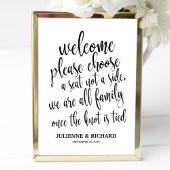 welcome
please choose
a seat not a side,
we are all family
once the knot is tied
JULIENNE & RICHARD